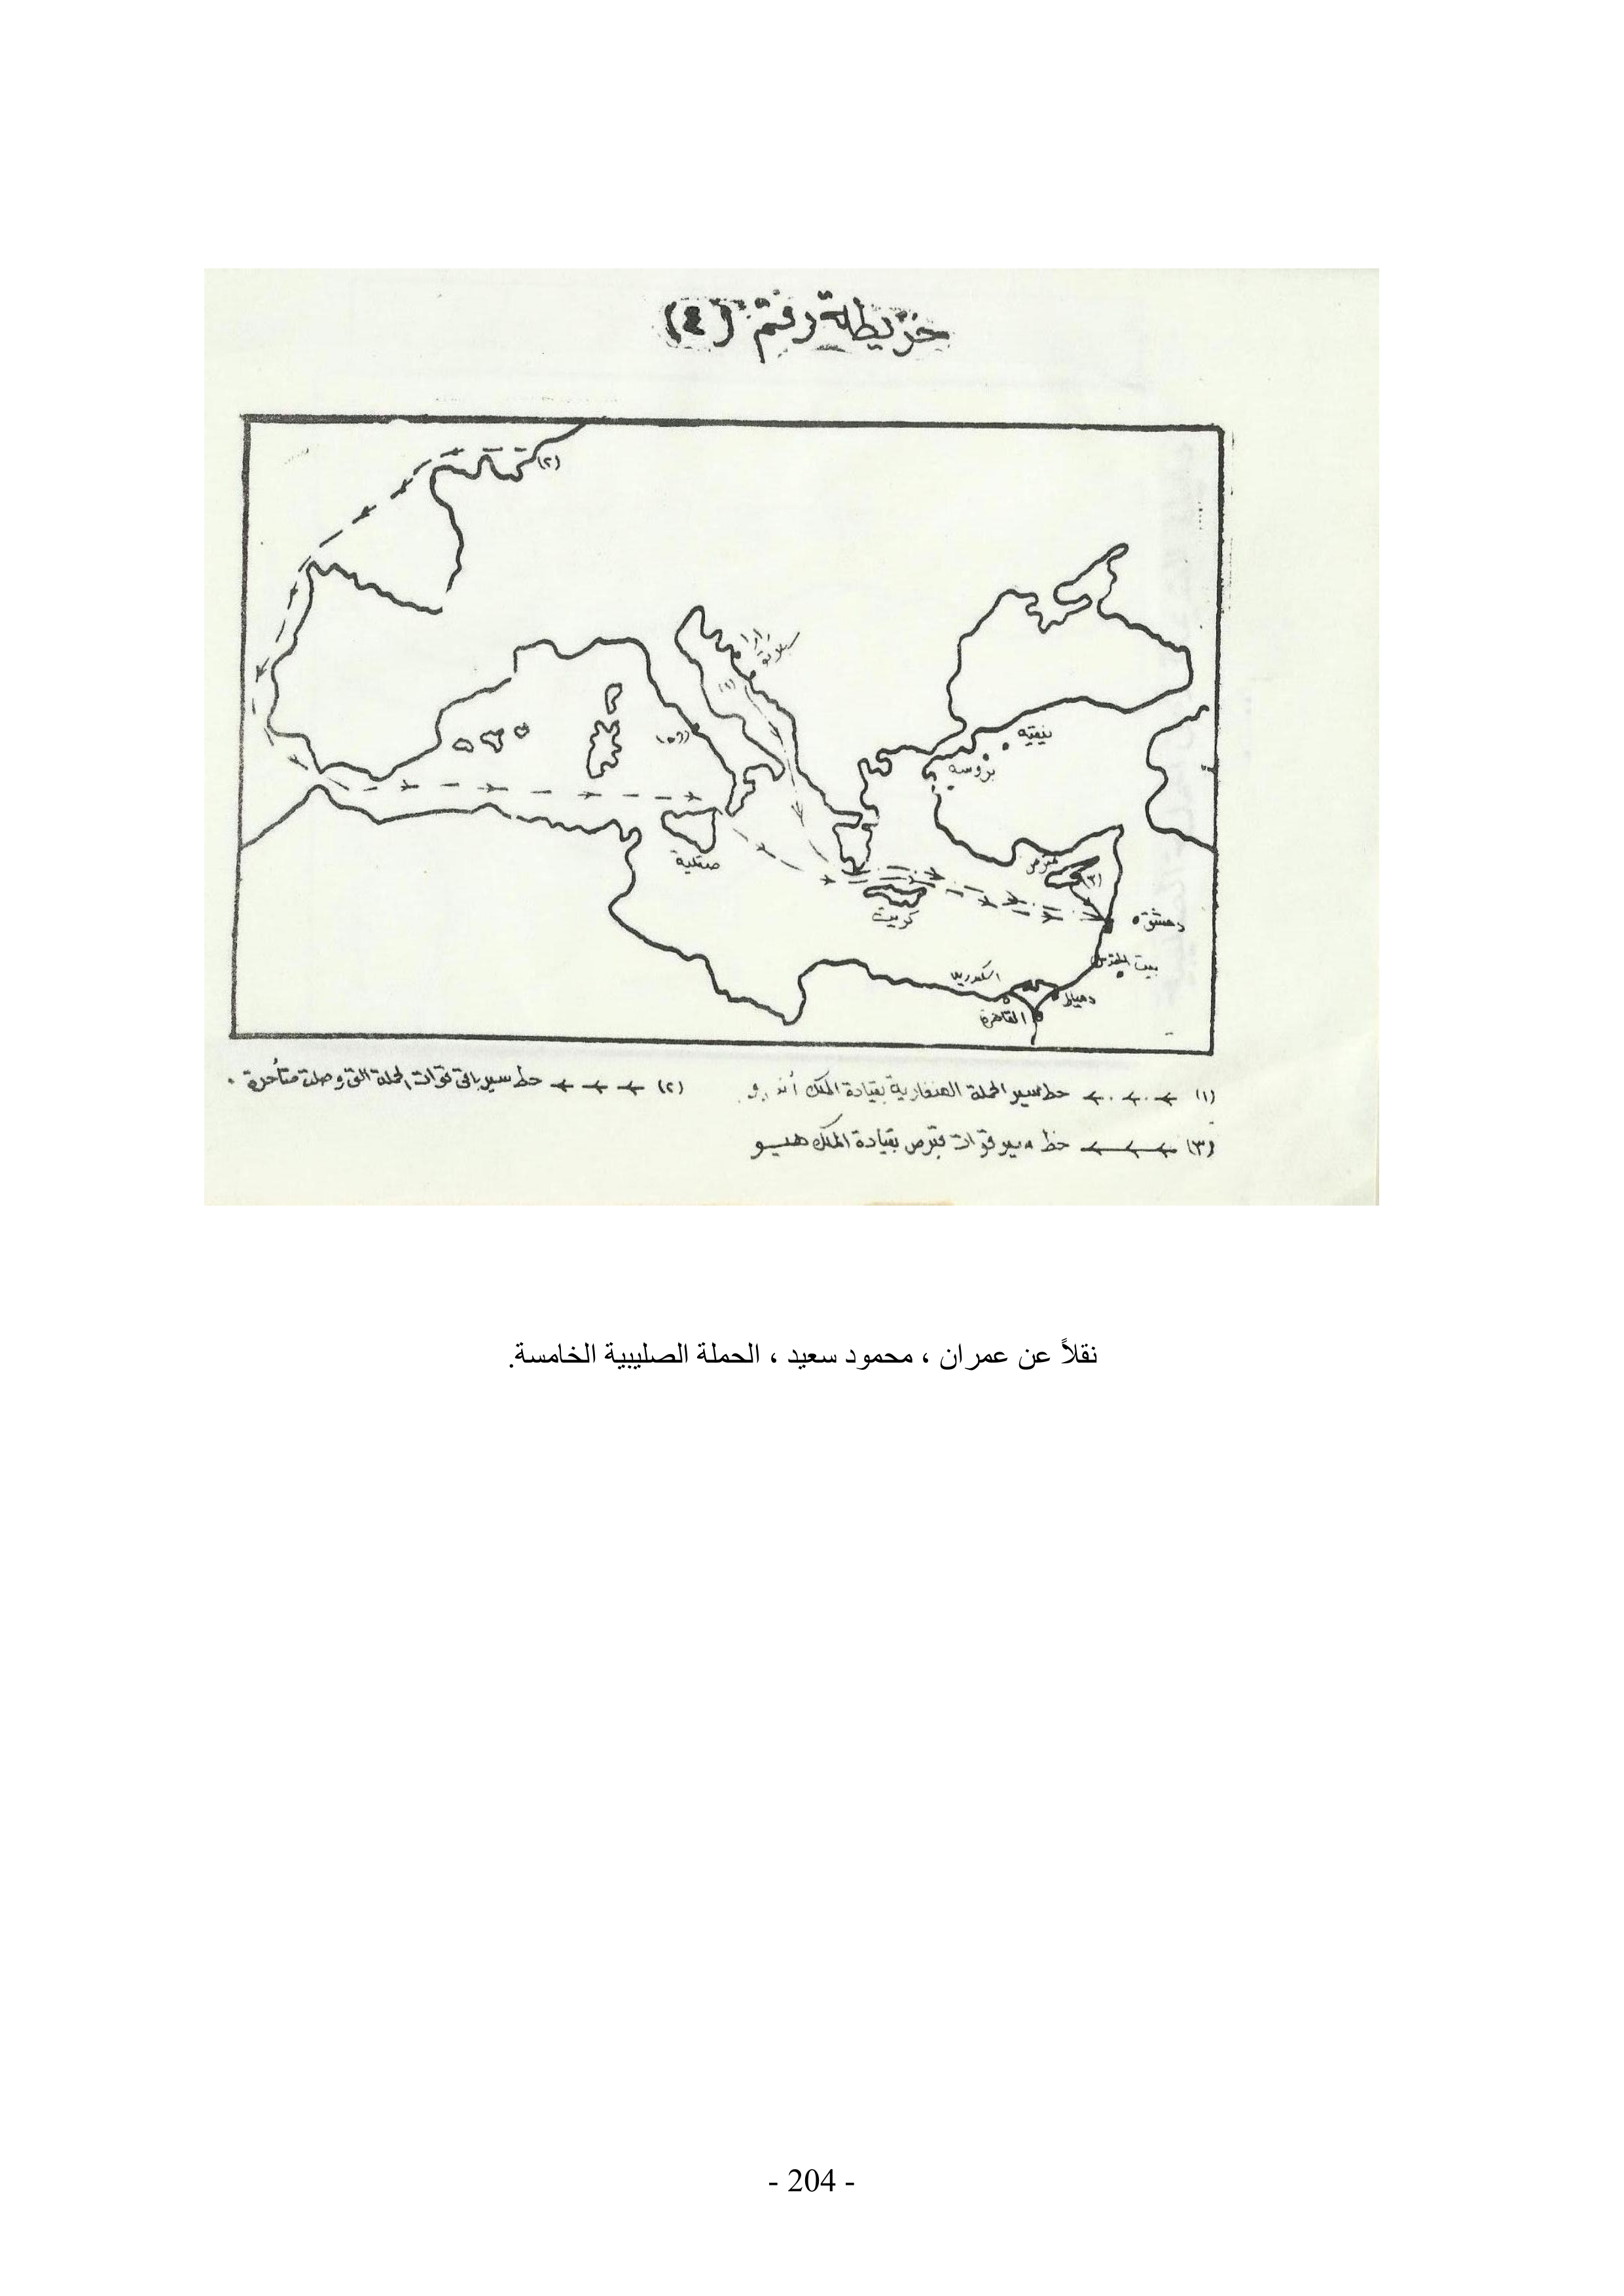 خريطة رقم (٤)
(٢)
زارا
(١)
روما
نيقية
بروسه
صقلية
كريت
قبرص
(٣)
دمشق
بيت المقدس
اسكندرية
دمياط
القاهرة
(١) خط سير الحملة الهنغارية بقيادة الملك أندرو
(٢) خط سير باقى قوات الحملة التى وصلت متأخرة .
(٣) خط سير قوات قبرص بقيادة الملك هيو
نقلاً عن عمران ، محمود سعيد ، الحملة الصليبية الخامسة.
- 204 -